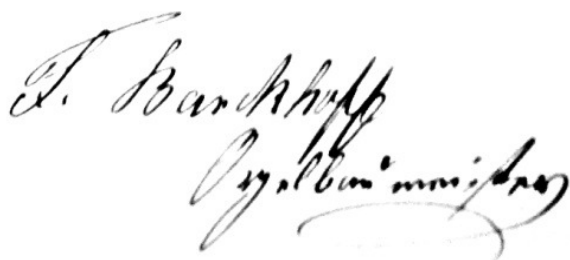 F. Barckhoff
Orgelbaumeister